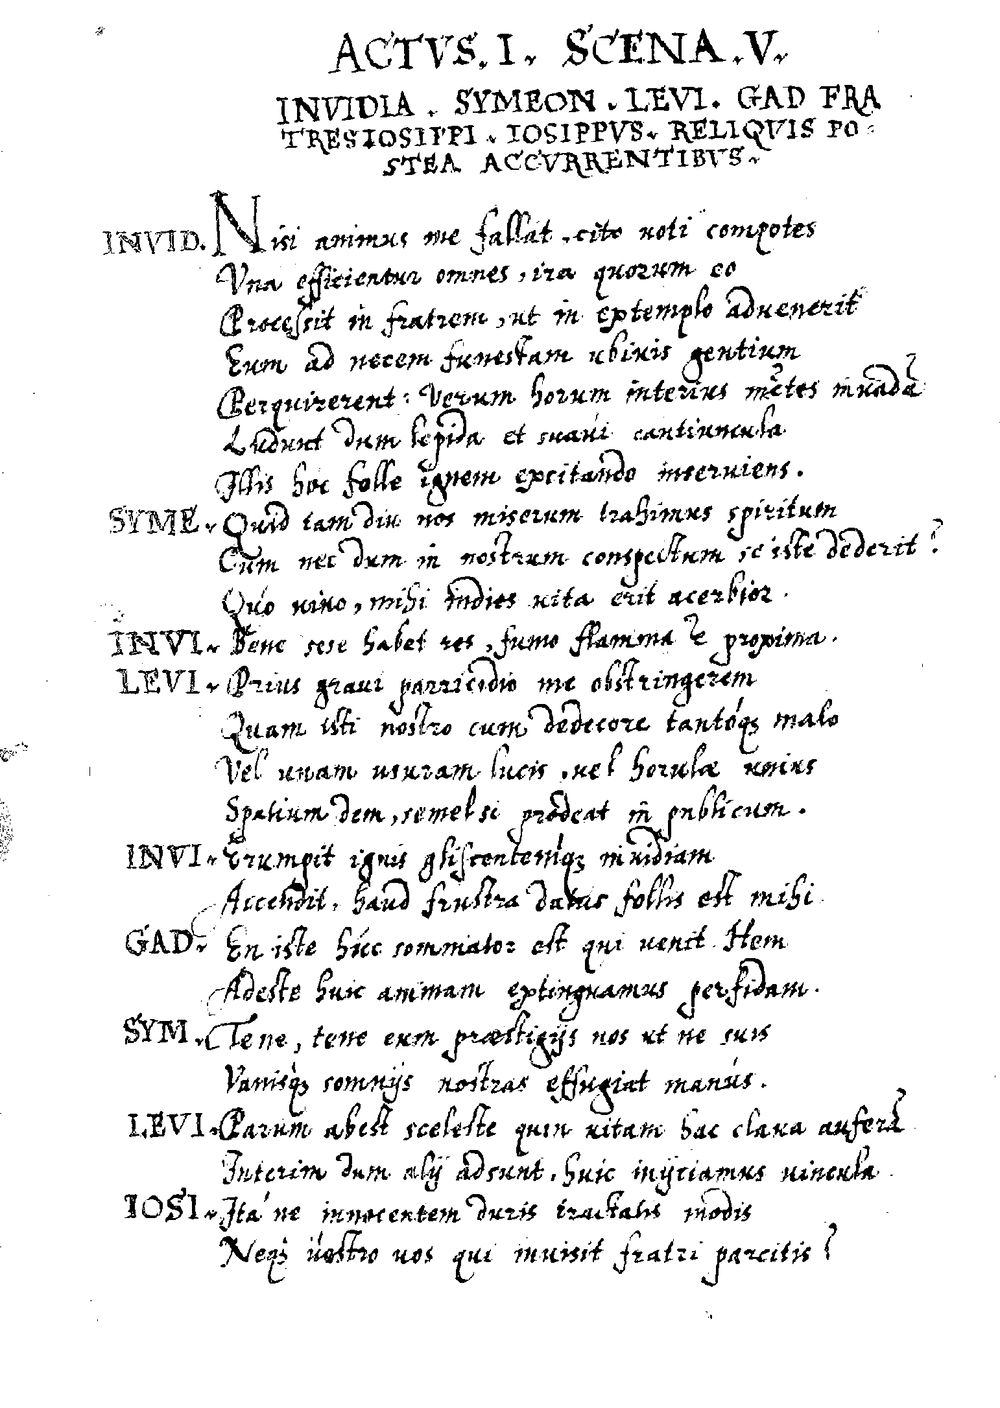 ACTVS. I. SCENA. V.
INVIDIA. SYMEON. LEVI. GAD FRA
TRES IOSIPPI. IOSIPPVS. RELIQVIS PO-
STEA ACCVRRENTIBVS.
INVID. Nisi animus me fallat, cito uoti compotes
Vna efficientur omnes, ira quorum eo
Processit in fratrem, ut in extemplo aduenerit
Eum ad necem funestam ubiuis gentium
Perquirerent: Verum horum interius mẽtes inuadã
Ludunt dum lepida et suaui cantiuncula
Illis hoc folle ignem excitando inseruiens.
SYME. Quid tam diu nos miserum trahimus spiritum
Cum nec dum in nostrum conspectum se iste dederit?
Quo uiuo, mihi indies uita erit acerbior.
INVI. Bene sese habet res, fumo flamma ẽ proxima.
LEVI. Prius graui parricidio me obstringerem
Quam isti nostro cum dedecore tantóq; malo
Vel unam usuram lucis, uel horulæ unius
Spatium dem, semel si prodeat in publicum.
INVI. Erumpit ignis gliscentemq́; inuidiam
Accendit, haud frustra datus follis est mihi
GAD. En iste húc somniator est qui uenit. Hem
Adeste huic animam extinguamus perfidam.
SYM. Tene, tene eum præstigijs nos ut ne suis
Vanisq́; somnijs nostras effugiat manús.
LEVI. Parum abest sceleste quin uitam hac claua auferã
Interim dum alij adsunt, huic inijciamus uincula
IOSI. Itá ne innocentem duris tractatis modis
Neq́; uestro uos qui inuisit fratri parcitis?